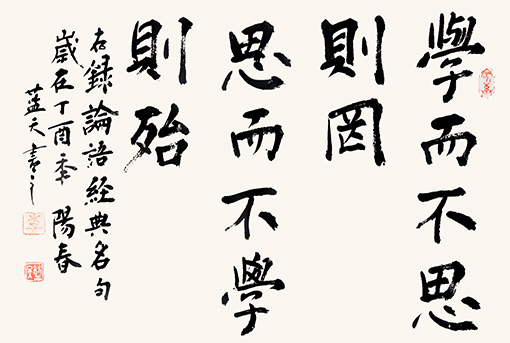 學而不思
則罔
思而不學
則殆
右錄論語經典名句
歲在丁酉季陽春
藍天書